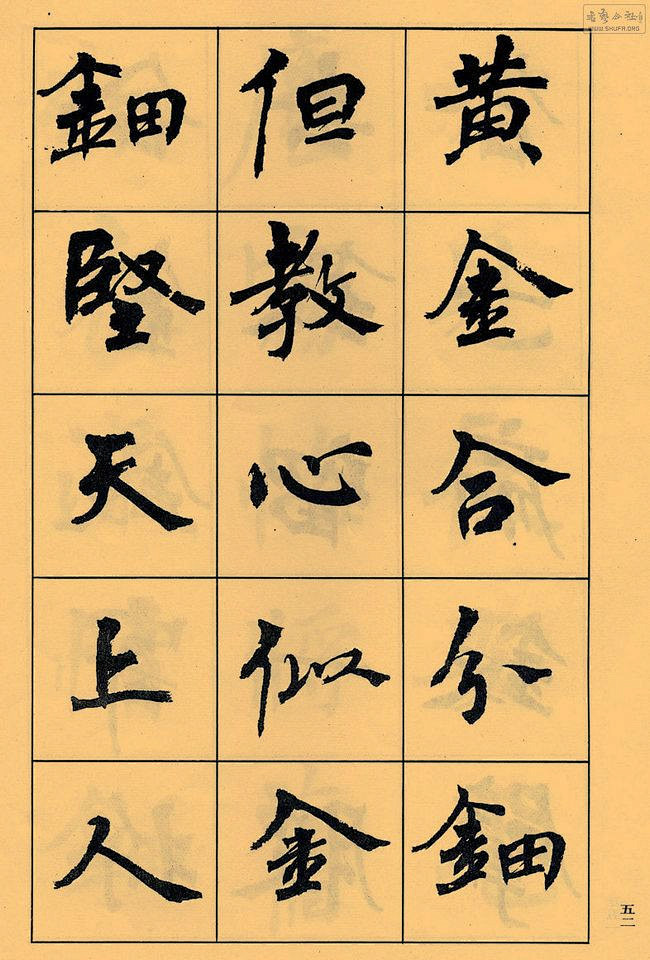 黄金合分鈿
但教心似金
鈿堅天上人
五二
WWW.SHUFA.ORG